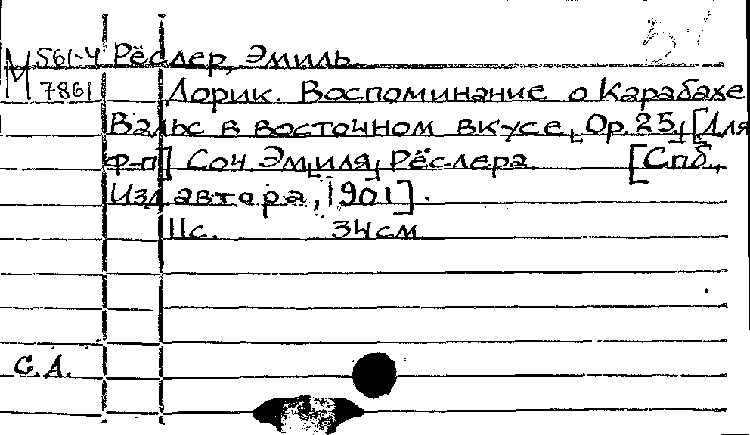 М 561-4 Рёслер, Эмиль
7861 Лорик. Воспоминание о Карабахе
Вальс в восточном вкусе, Op. 25, [Для
ф-п] Соч. Эмиля Рёслера. [Спб.,
Изд. автора, 1901].
11с. 34см
С.А.